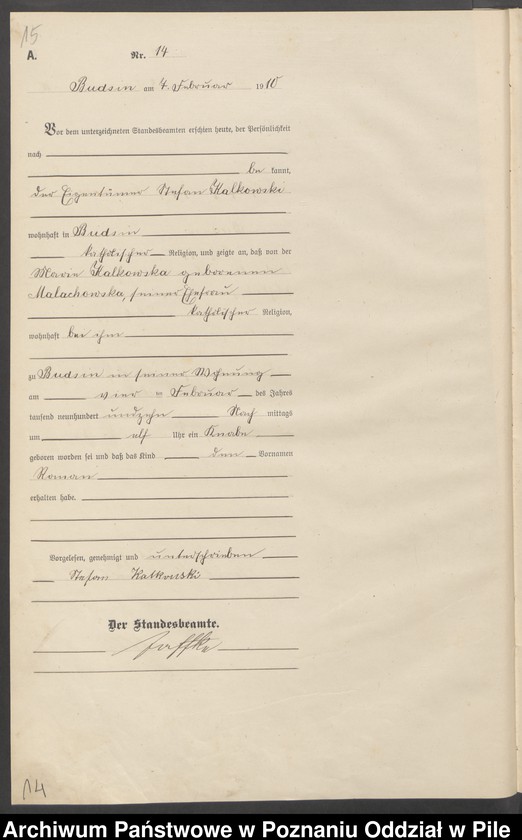 15
A. Nr. 14
Budsin am 7. Februar 1910
Vor dem unterzeichneten Standesbeamten erschien heute, der Persönlichkeit
nach
be kannt,
der Eigentümer Stefan Kalkowski
wohnhaft in Budsin
katholischer Religion, und zeigte an, daß von der
Marie Kalkowska geborenen
Malachowska, seiner Ehefrau
katholischer Religion,
wohnhaft bei ihm
zu Budsin in seiner Wohnung
am vier ten Februar des Jahres
tausend neunhundert undzehn Nach mittags
um elf Uhr ein Knabe
geboren worden sei und daß das Kind den Vornamen
Roman
erhalten habe.
Vorgelesen, genehmigt und unterschrieben
Stefan Kalkowski
Der Standesbeamte.
Jaffke
14
Archiwum Państwowe w Poznaniu Oddział w Pile